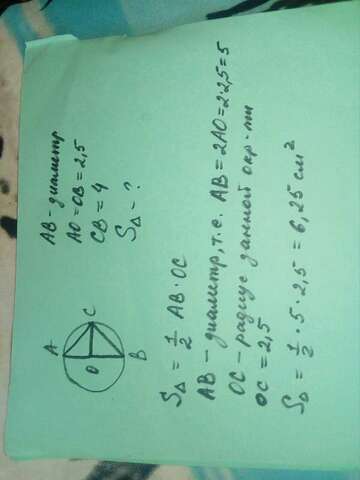 AB - диаметр
AO = OB = 2,5
CB = 4
S△ - ?
C
A
O
B
S△ = 1/2 AB · OC
AB - диаметр, т.е. AB = 2AO = 2·2,5 = 5
OC - радиус данной окр-ти
OC = 2,5
S△ = 1/2 · 5 · 2,5 = 6,25 см²